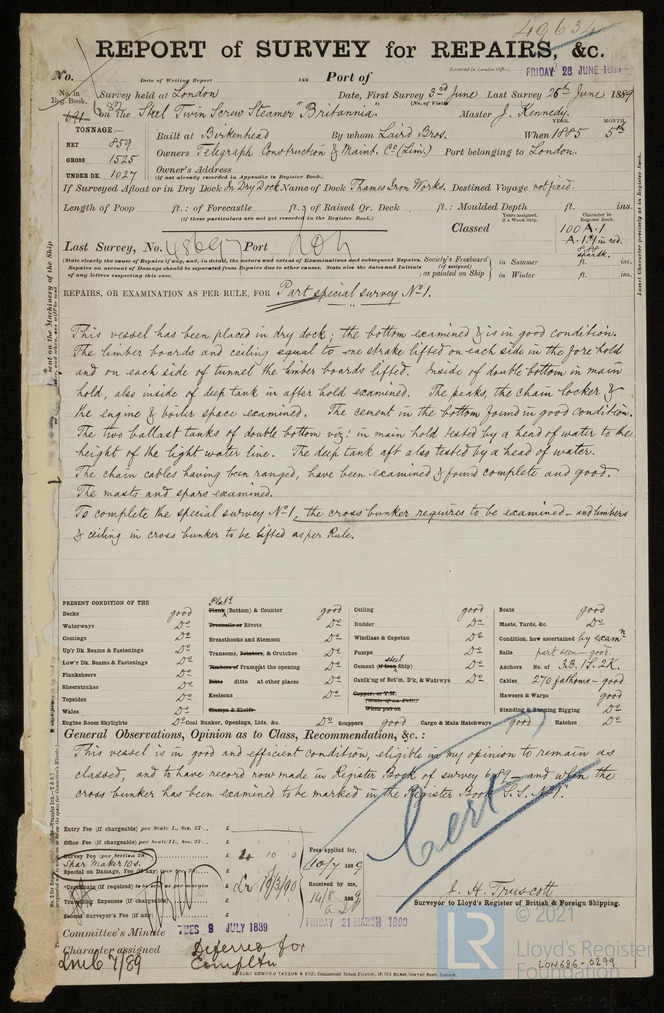 49634
REPORT of SURVEY for REPAIRS, &c.
No. Date of Writing Report 188 Port of Received in London Office, FRIDAY 28 JUNE 1889
No. in Reg. Book. Survey held at London Date, First Survey 3rd June Last Survey 26th June 1889
(No. of Visits
on the Steel Twin Screw Steamer "Britannia" Master J. Kennedy.
TONNAGE:— YEAR. MONTH.
NET 859 Built at Birkenhead By whom Laird Bros. When 1885 5th
GROSS 1525 Owners Telegraph Construction & Maint. Co (Lim.) Port belonging to London.
UNDER DK. 1027 Owner's Address
(if not already recorded in Appendix to Register Book.)
If Surveyed Afloat or in Dry Dock In Dry Dock Name of Dock Thames Iron Works. Destined Voyage not fixed.
Length of Poop ft.: of Forecastle ft.: of Raised Qr. Deck ft.: Moulded Depth ft. ins.
(if these particulars are not yet recorded in the Register Book.)
Years assigned, if a Wood Ship. Character in Register Book.
Classed 100 A.1
Last Survey, No. 48697 Port Lon
A.1 in red.
(State clearly the cause of Repairs if any, and, in detail, the nature and extent of Examinations and subsequent Repairs.
Repairs on account of Damage should be separated from Repairs due to other causes. State also the dates and Initials
of any letters respecting this case.
Society's Freeboard (if assigned) as painted on Ship in Summer ft. ins.
in Winter ft. ins.
REPAIRS, OR EXAMINATION AS PER RULE, FOR Part special survey No 1.
This vessel has been placed in dry dock; the bottom examined & is in good condition.
The limber boards and ceiling equal to one strake lifted on each side in the fore hold
and on each side of tunnel the limber boards lifted. Inside of double bottom in main
hold, also inside of deep tank in after hold examined. The peaks, the chain locker &
the engine & boiler space examined. The cement in the bottom found in good condition.
The two ballast tanks of double bottom viz: in main hold tested by a head of water to the
height of the light water line. The deep tank aft also tested by a head of water.
The chain cables having been ranged, have been examined & found complete and good.
The masts and spars examined.
To complete the special survey No 1, the cross bunker requires to be examined - and limbers
& ceiling in cross bunker to be lifted as per Rule.
PRESENT CONDITION OF THE
Decks good
Waterways Do
Comings Do
Up'r Dk. Beams & Fastenings Do
Low'r Dk. Beams & Fastenings Do
Planksheers Do
Sheerstrakes Do
Topsides Do
Wales Do
Engine Room Skylights Do
Plats
Plank (Bottom) & Counter good
Treenails or Rivets Do
Breasthooks and Stemson Do
Transoms, Pointers, & Crutches Do
Timbers of Frame at the opening Do
Ditto ditto at other places Do
Keelsons Do
Clamps & Shelfs
Coal Bunker, Openings, Lids, &c. Do
Ceiling good
Rudder Do
Windlass & Capstan Do
Pumps Do
Cement (if Iron Ship) steel Do
Caulk'ng of Bot'm, D'k, & Watrwys Do
Copper, or Y.M.
When put on
Scuppers good
Cargo & Main Hatchways good
Boats good
Masts, Yards, &c. Do
Condition, how ascertained by exam'n
Sails part seen - good
Anchors No. of 3B. 1S. 2K.
Cables 270 fathoms - good
Hawsers & Warps good
Standing & Running Rigging Do
Hatches Do
General Observations, Opinion as to Class, Recommendation, &c.:
This vessel is in good and efficient condition, eligible in my opinion to remain as
classed, and to have record now made in Register Book of survey 6.89 - and when the
cross bunker has been examined to be marked in the Register Book S.S. No 1.
Cert
Entry Fee (if chargeable) per Scale I., Sec. 27.. £
Office Fee (if chargeable) per Scale II., Sec. 27.. £
Survey Fee (per Section 28) £
Spar Maker 10s.
Special on Damage, Fee (if any) (per Sec. 28) £
Certificate (if required) to be sent as per margin
Travelling Expenses (if chargeable) £
Second Surveyor's Fee (if any) £
Fees applied for,
10/7 1889
Received by me,
14/8 1889
19/3/90
J. H. Truscott
Surveyor to Lloyd's Register of British & Foreign Shipping.
Committee's Minute TUES 9 JULY 1889 FRIDAY 21 MARCH 1890
Character assigned Deferred for
Completn
© 2021
LR Lloyd's Register Foundation
LON686-0299